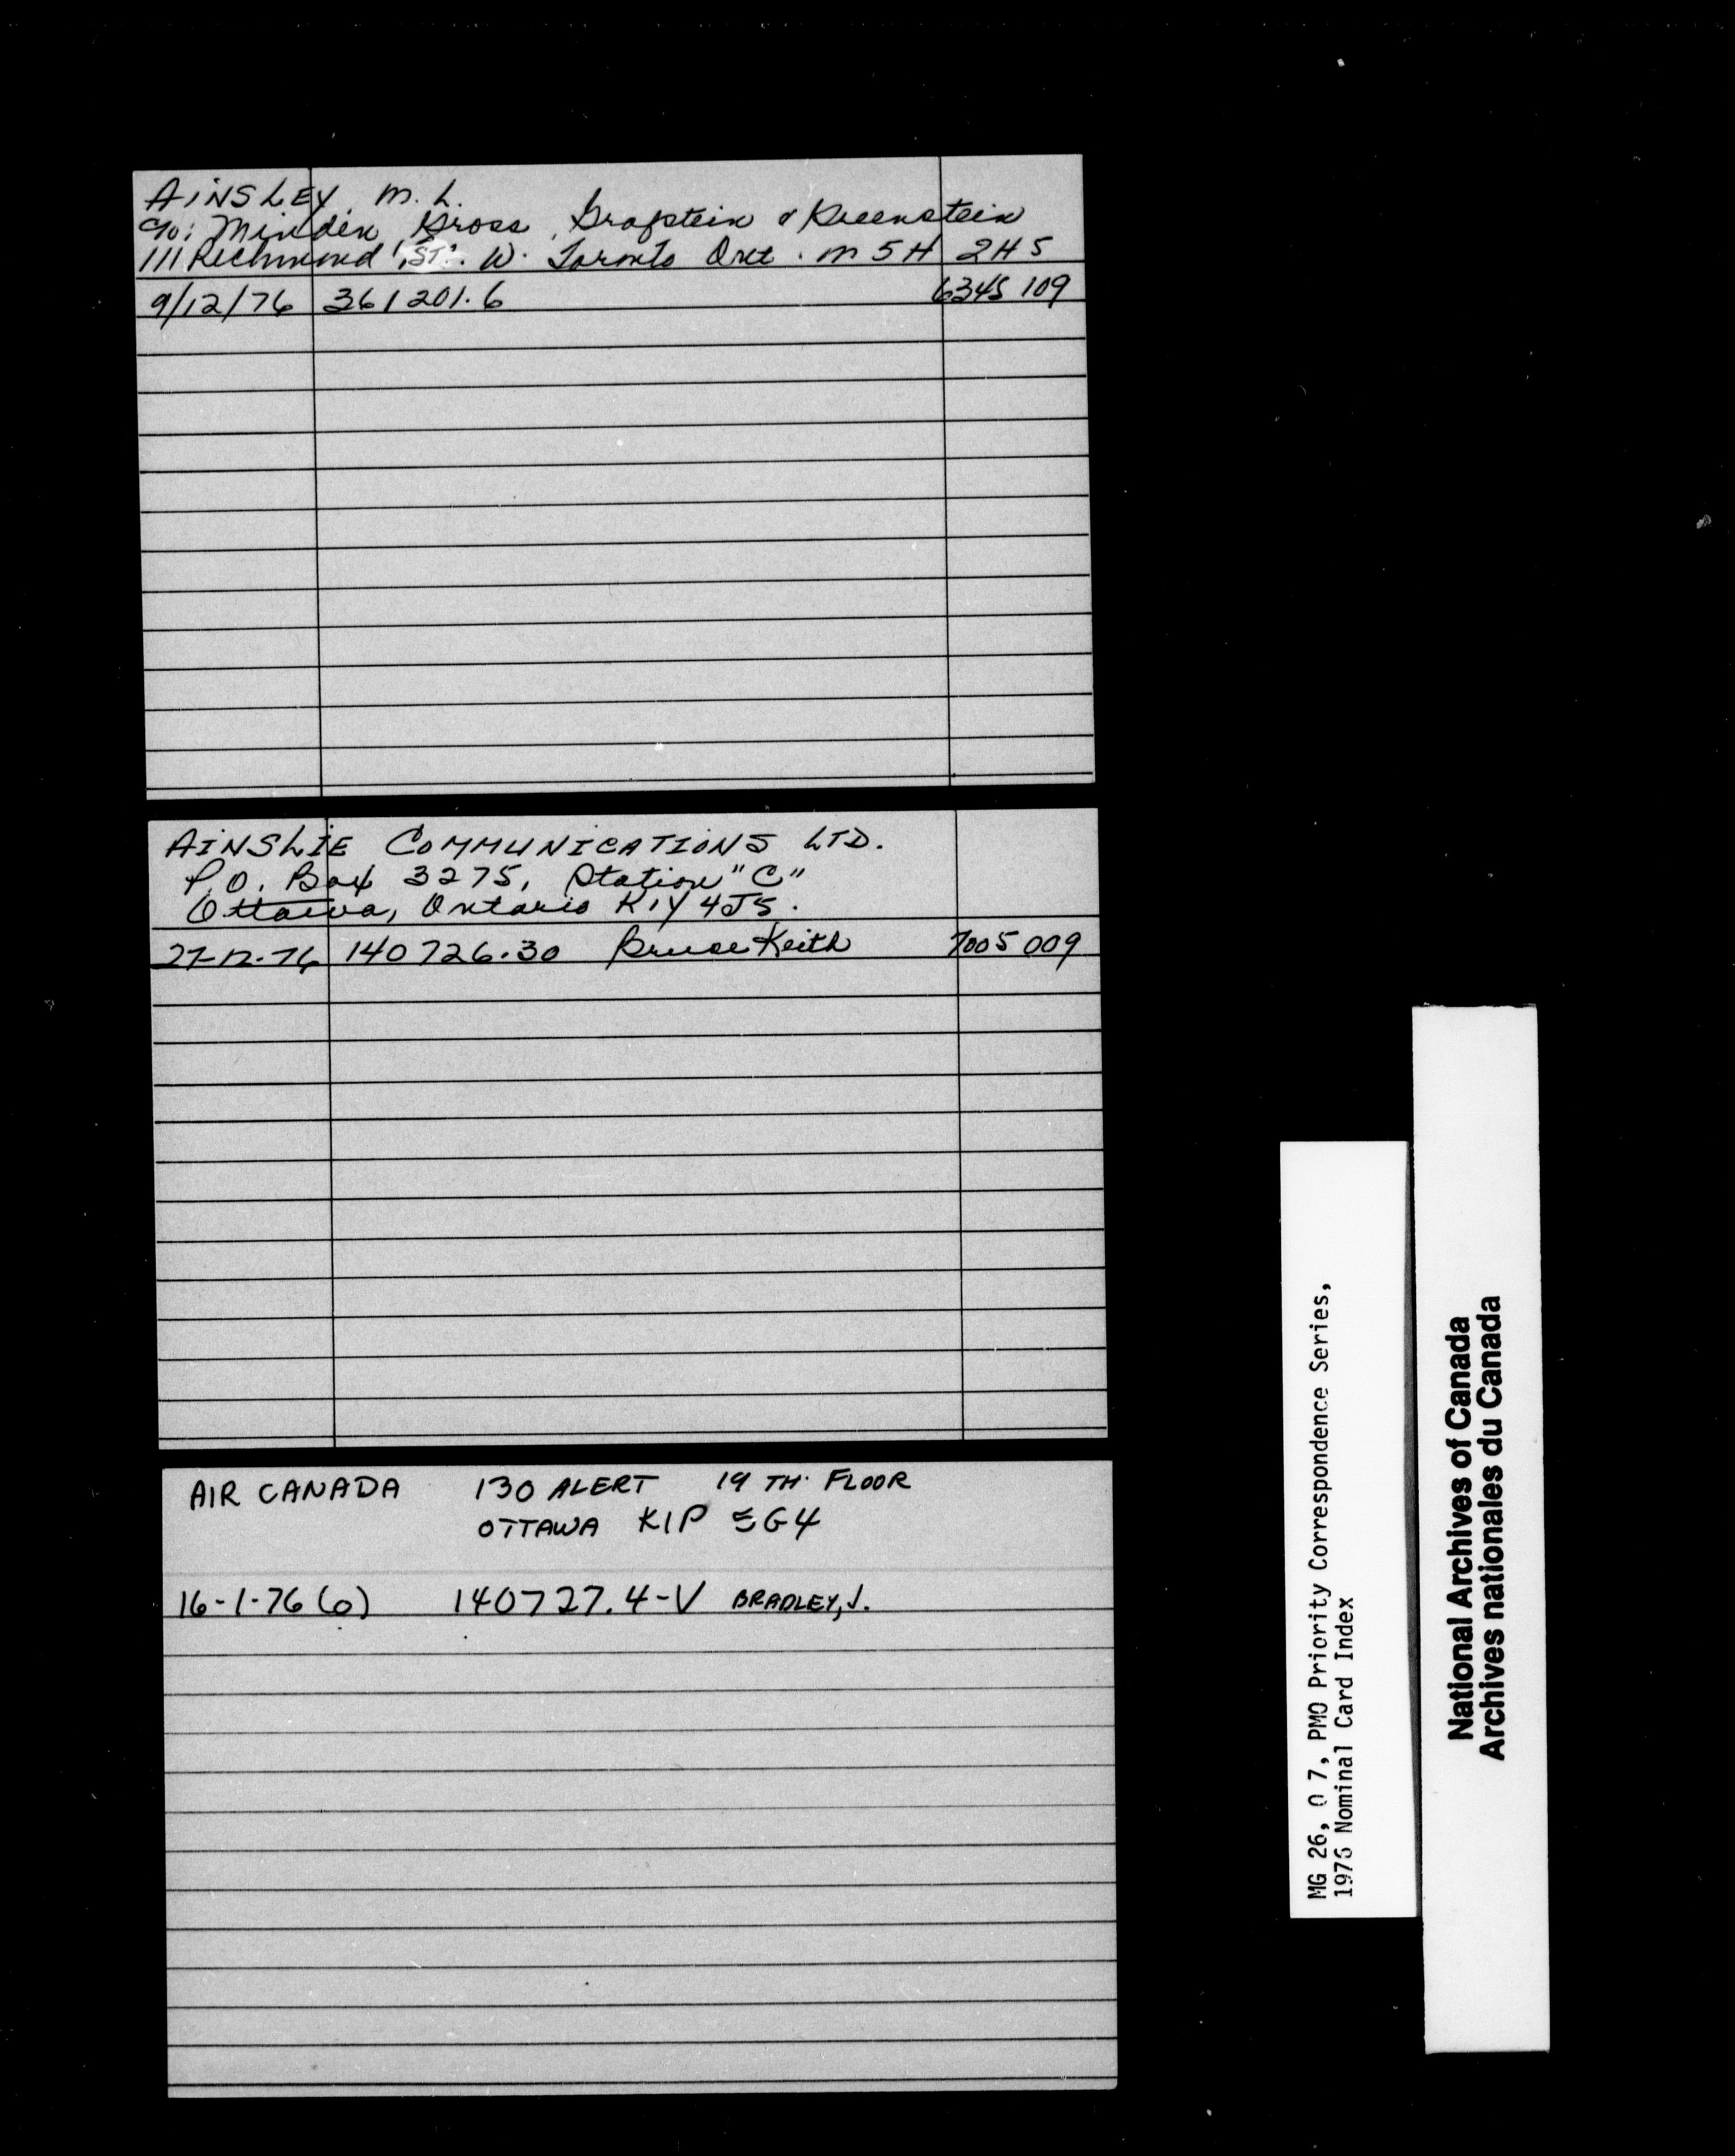 AINSLEY, M. L.
c/o: Minden, Gross, Grafstein & Greenstein
111 Richmond ST. W. Toronto Ont. M5H 2H5
9/12/76 361201.6 6345 109
AINSLIE COMMUNICATIONS LTD.
P.O. Box 3275, Station "C"
Ottawa, Ontario K1Y 4J5.
27-12-76 140726.30 Bruce Keith 7005 009
AIR CANADA 130 ALERT 19 TH. FLOOR
OTTAWA K1P 5G4
16-1-76 (o) 140727.4-V BRADLEY, J.
MG 26, O 7, PMO Priority Correspondence Series,
1976 Nominal Card Index
National Archives of Canada
Archives nationales du Canada